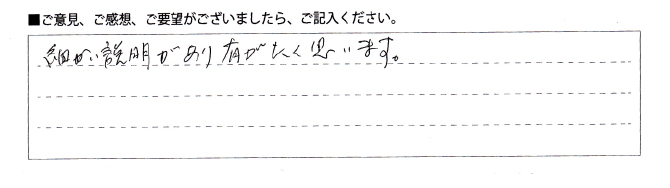 ■ご意見、ご感想、ご要望がございましたら、ご記入ください。
細かい説明があり有がたく思います。